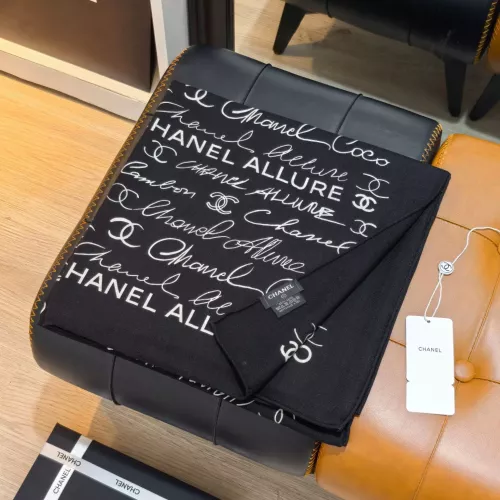 Chanel Coco
Chanel Allure
HANEL ALLURE
CHANEL ALLURE
Cambon
Chanel
Chanel Allure
Chanel
Chanel Allure
HANEL ALLUR
CHANEL
CHANEL
CHANEL
CHANEL